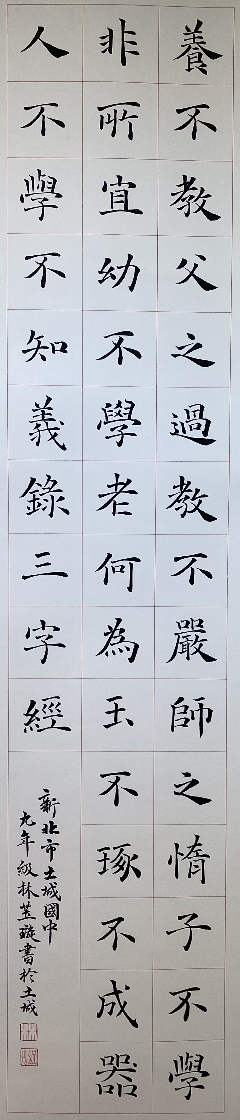 養不教父之過教不嚴師之惰子不學
非所宜幼不學老何為玉不琢不成器
人不學不知義錄三字經
新北市土城國中
九年級林芸璇書於土城